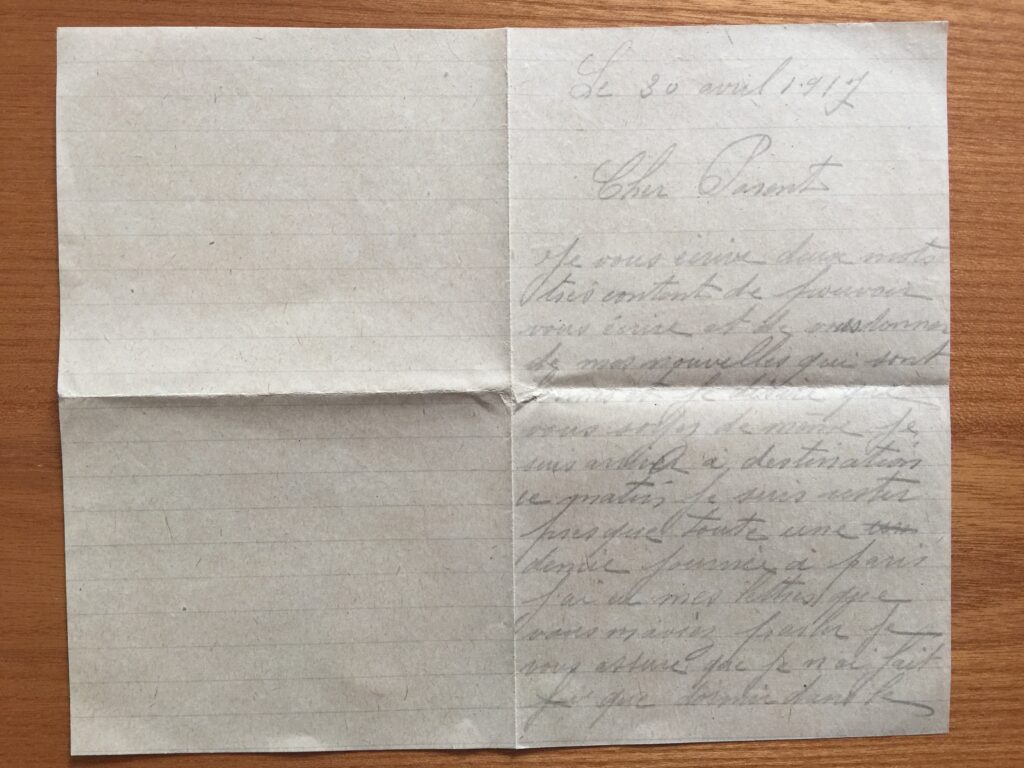 Le 30 avril 1917
Cher Parent
Je vous écrire deux mots
très content de pouvoir
vous écrire et de vous donner
de mes nouvelles qui sont
et je désire que
vous soyez de même je
suis arriver a destination
ce matin je suis rester
presque toute une
demie journée à paris
j'ai eu mes lettres que
vous maviez parler je
vous assure que je n ai fait
que dormir dans le